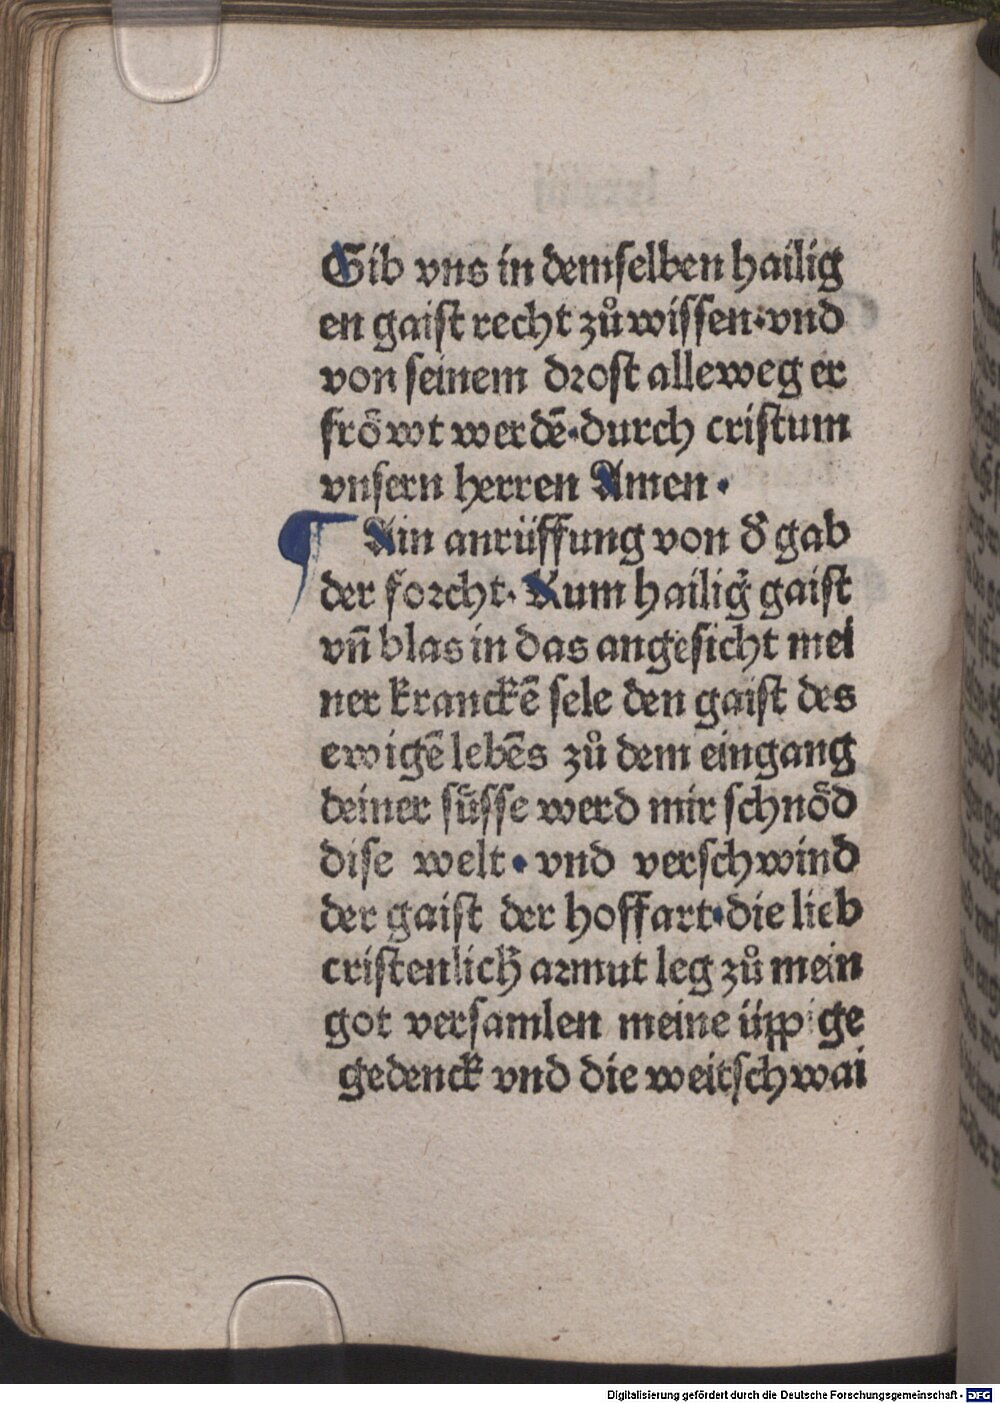 Gib vns in demselben hailig
en gaist recht zů wissen·vnd
von seinem drost alleweg er
fröwt werdē·durch cristum
vnsern herren Amen·
¶ Ain anrüffung von d̕ gab
der forcht· Kum hailig̃ gaist
vn̄ blas in das angesicht mei
ner kranckē sele den gaist des
ewigē lebēs zů dem eingang
deiner süsse werd mir schnöd
dise welt· vnd verschwind
der gaist der hoffart·die lieb
cristenlich̕ armut leg zů mein
got versamlen meine üppige
gedenck vnd die weitschwai
Digitalisierung gefördert durch die Deutsche Forschungsgemeinschaft - DFG